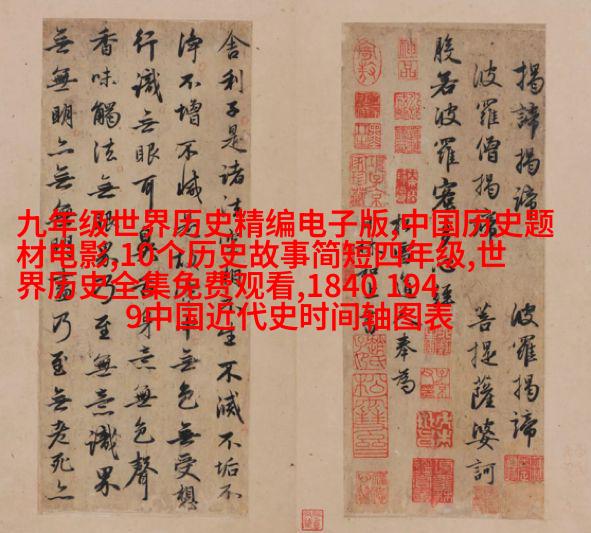 九年级世界历史精编电子版,中国历史题
材电影,10个历史故事简短四年级,世
界历史全集免费观看,1840 194
9中国近代史时间轴图表
揭諦揭諦 波羅揭諦
波羅僧揭諦 菩提薩婆訶
般若波羅蜜多心經
松雪道人奉為
舍利子是諸法空相不生不滅不垢不
淨不增不減是故空中無色無受想
行識无眼耳鼻舌身意無色聲
香味觸法無眼界乃至無意識界
無無明亦無無明盡乃至無老死亦